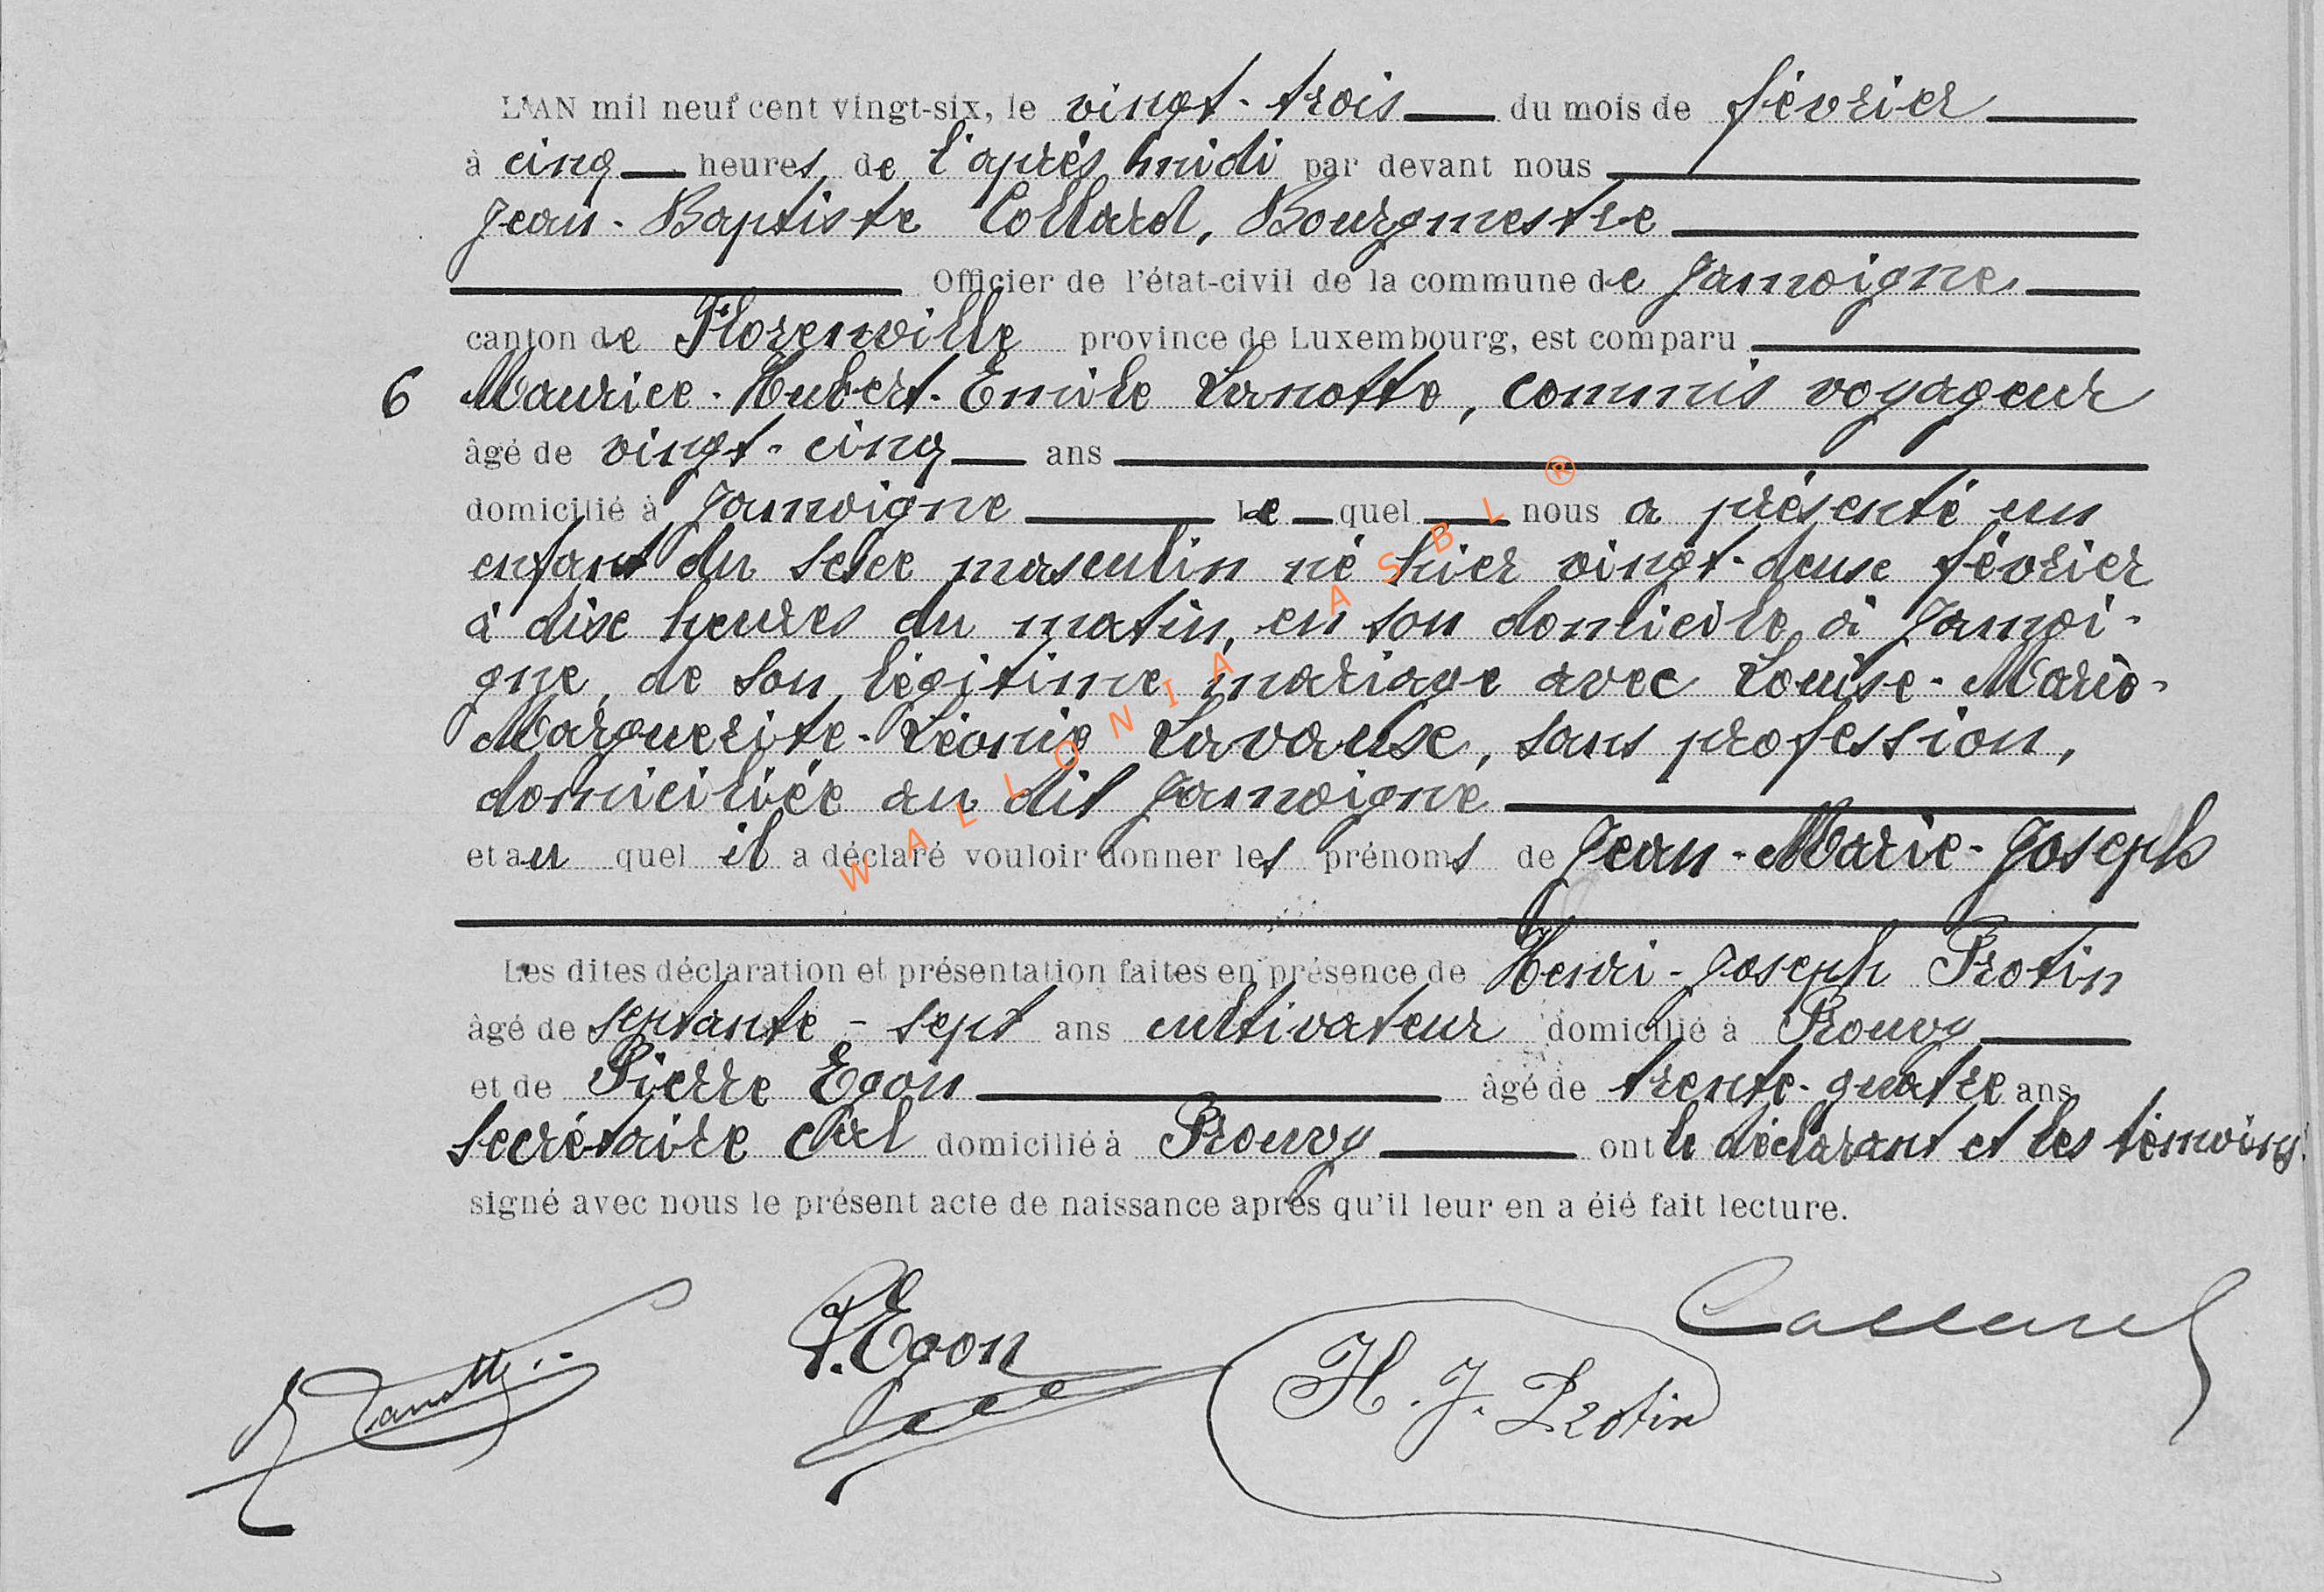 L'AN mil neuf cent vingt-six, le vingt-trois du mois de février
à cinq heures de l'après midi par devant nous
Jean-Baptiste Collard, Bourgmestre
Officier de l'état-civil de la commune de Jamoigne
canton de Florenville province de Luxembourg, est comparu
6 Maurice-Hubert-Emile Lanotte, commis voyageur
âgé de vingt-cinq ans
domicilié à Jamoigne Le quel nous a présenté un
enfant du sexe masculin né hier vingt-deux février
à dix heures du matin, en son domicile à Jamoi-
gne, de son légitime mariage avec Louise-Marie-
Marguerite-Léonie Lavaux, sans profession,
domiciliée au dit Jamoigne
et au quel il a déclaré vouloir donner les prénoms de Jean-Marie-Joseph
Les dites déclaration et présentation faites en présence de Henri-Joseph Protin
âgé de septante-sept ans cultivateur domicilié à Prouvy
et de Pierre Egon âgé de trente-quatre ans
secrétaire Cal domicilié à Prouvy ont le déclarant et les témoins
signé avec nous le présent acte de naissance après qu'il leur en a été fait lecture.
Lanotte
P. Egon
H. J. Protin
Collard
WALLONIA ASBL ®